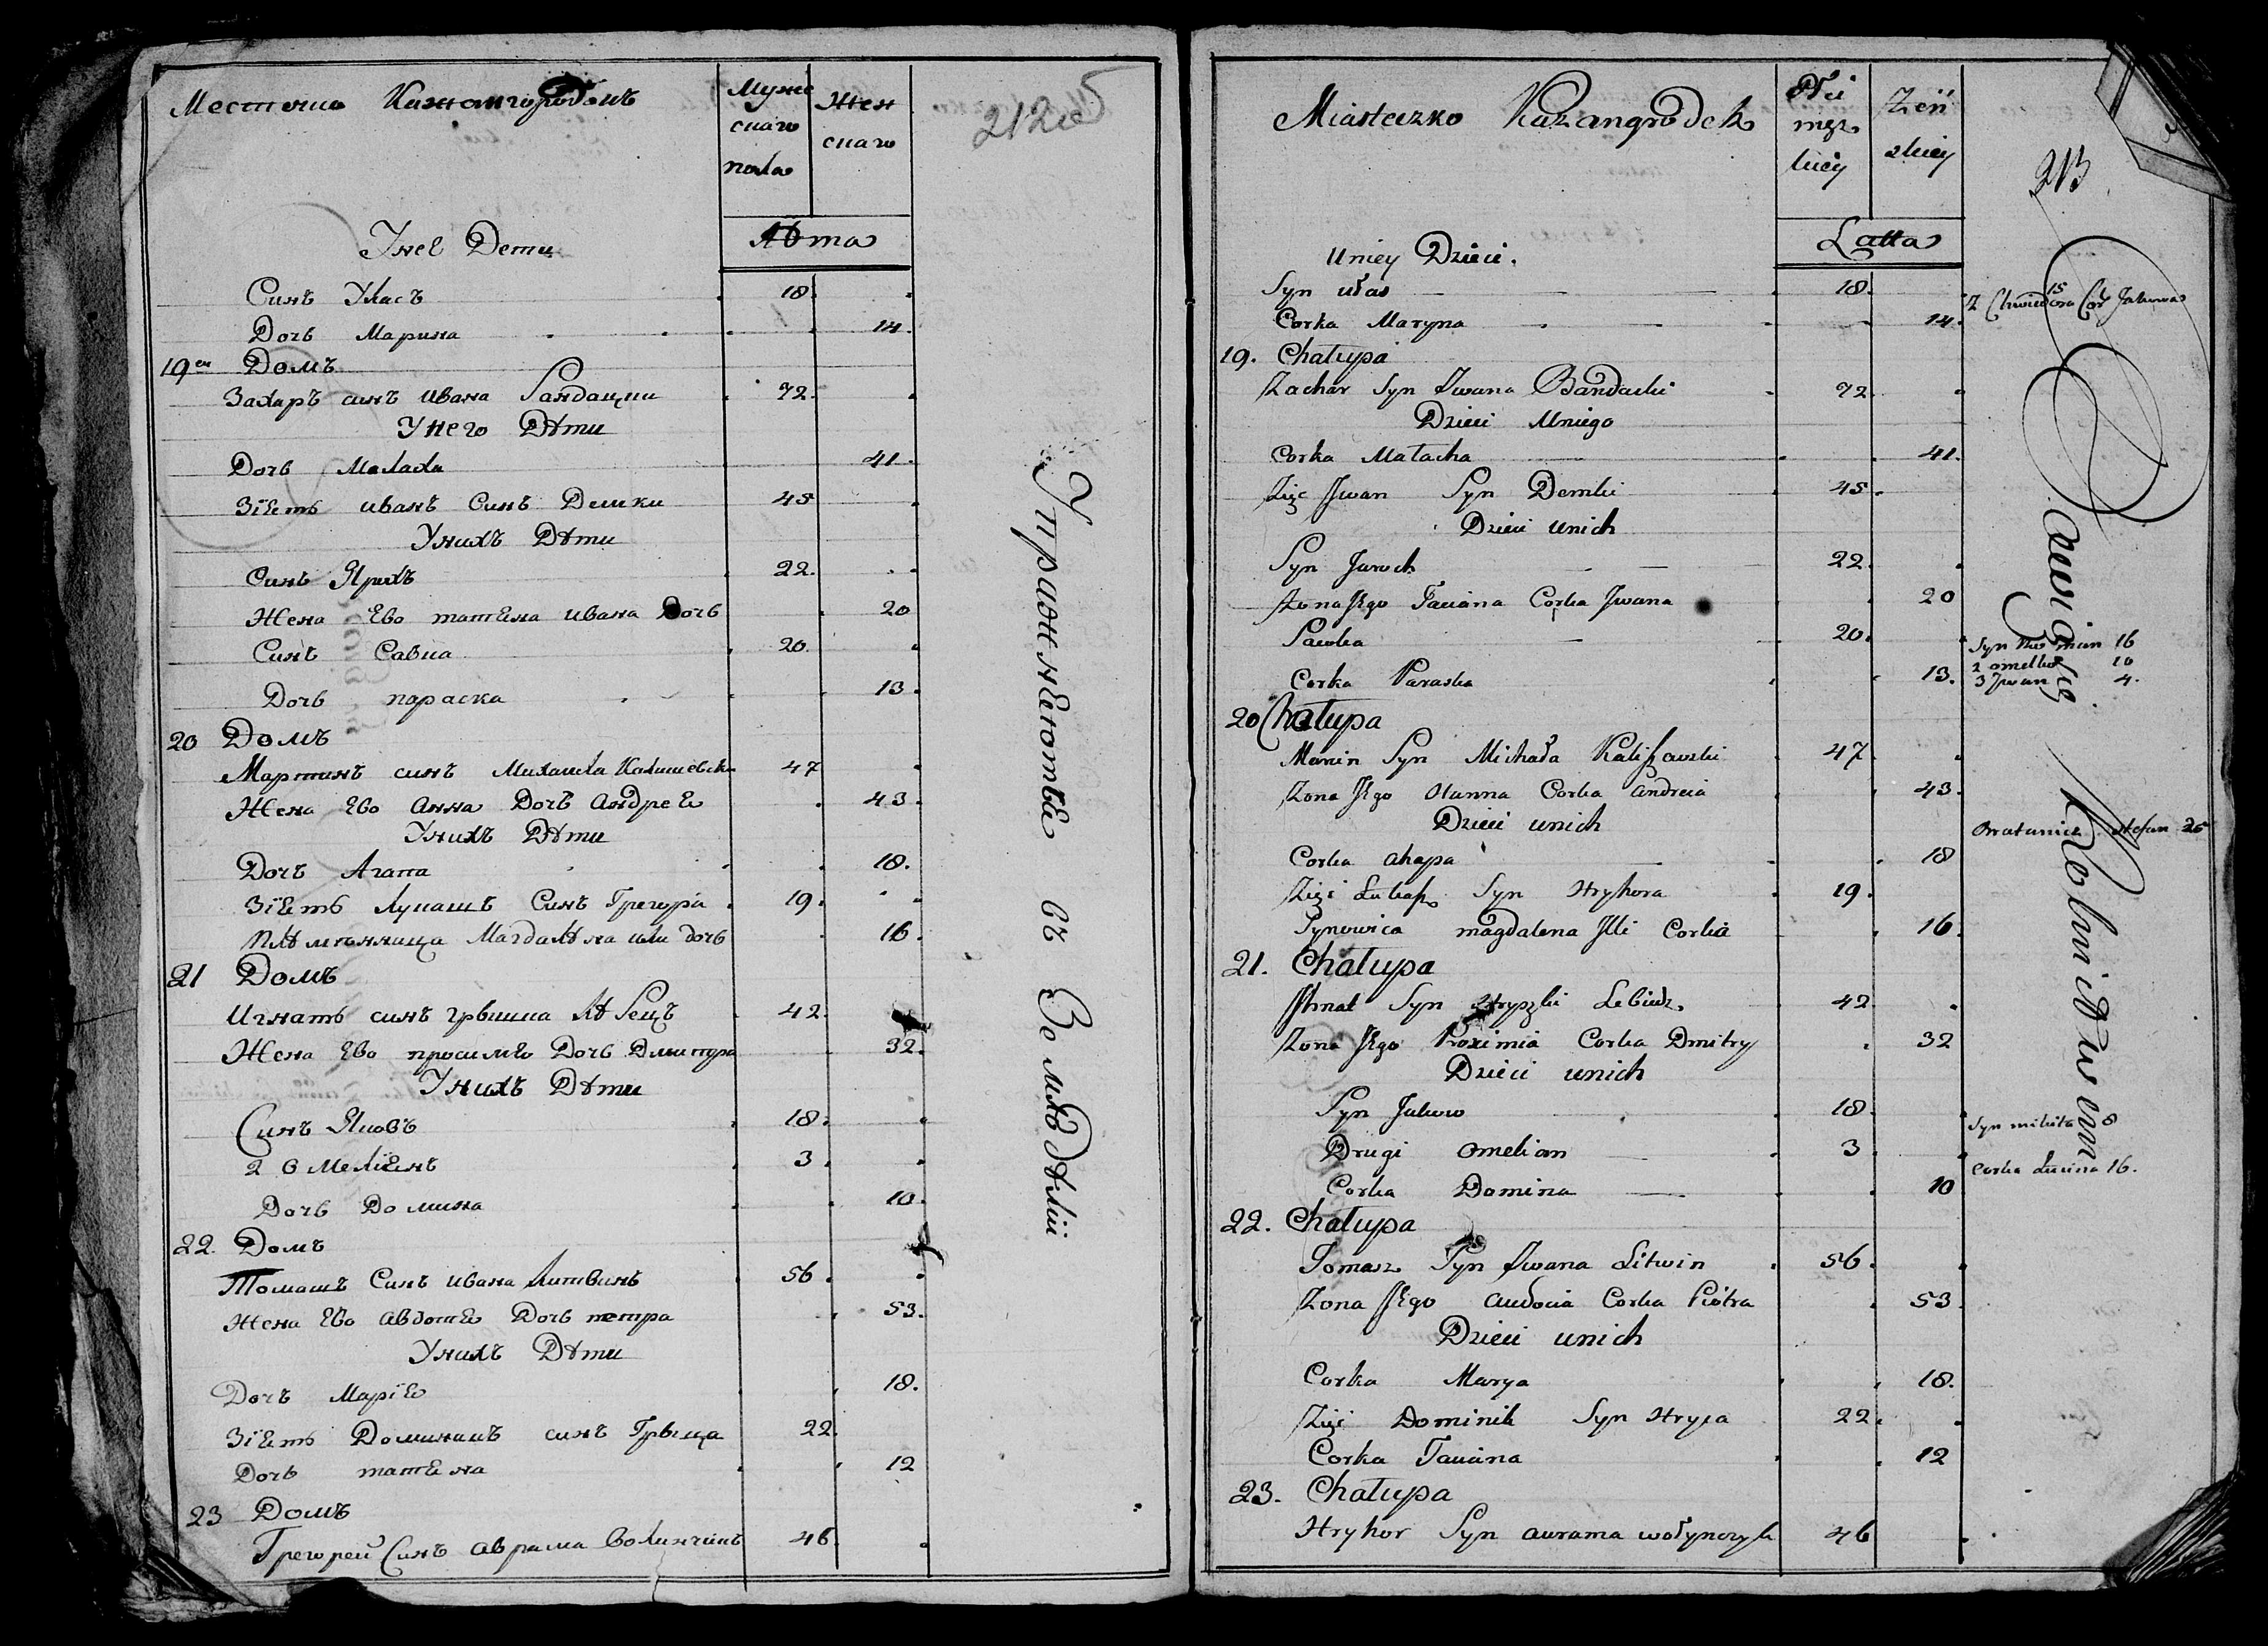 Местечко Кажангородокъ
Мужс
скаго
пола
Жен
скаго
212
Лѣта
Унее Дети
Синъ Уласъ 18.
Дочь Марина 14.
19 Домъ
Захаръ синъ Ивана Бандацки 72.
Унего Дѣти
Дочь Малаха 41.
Зіеть иванъ Синъ Демки 45
Унихъ Дѣти
Синъ Ярихъ 22.
Жена Ево татеена ивана Дочь 20
Синъ Савка 20.
Дочь параска 13.
20 Домъ
Мартинъ синъ Михаила Калишевски 47
Жена Ево Анна Дочъ Андрея 43.
Унихъ Дѣти
Дочъ Агапа 18.
Зіеть Лукашъ Синъ Грегора 19.
Плѣмѣнница Магдалѣна или дочь 16.
21 Домъ
Игнатъ синъ грышка Лѣбецъ 42.
Жена Ево просимія Дочь Дмитра 32.
Унихъ Дѣти
Синъ Яковъ 18.
2 Омелиенъ 3.
Дочь Домина 10.
22. Домъ
Томашъ Синъ ивана Литвинъ 56.
Жена Ево Авдотя Дочь петра 53.
Унихъ Дѣти
Дочъ Марія 18.
Зіеть Доминикъ синъ Грыца 22.
Дочь татеена 12
23 Домъ
Грегорей Синъ Аврама Волинчикъ 46.
Упражнеютье въ Земледѣліи
Miasteczko Kazangrodek
Płci
męz
kiey
Zeń
skiey
213
Latta
Uniey Dzieci.
Syn ułas 18.
2 Chwiedora Cor Jakowa 15
Corka Maryna 14.
19. Chałupa
Zachar Syn Jwana Bandacki 72.
Dzieci Uniego
Corka Małacha 41.
Zięć Jwan Syn Demki 45.
Dzieci unich
Syn Jaroch 22.
Zona Jego Taciana Corka Jwana 20
Sawka 20.
Syn 16
2 omelko 10
Corka Paraska 13.
3 Jwan 4.
20 Chałupa
Marcin Syn Michała Kaliszewski 47.
Zona Jego Hanna Corka Andreia 43.
Dzieci unich
Stefan 25
Corka ahapa 18
Zięć Lukasz Syn Hryhora 19.
Synowica magdalena Jlli Corka 16.
21. Chałupa
Jhnat Syn Hryszki Lebiedz 42.
Zona Jego Proximia Corka Dmitry 32
Dzieci unich
Syn Jakow 18.
Syn mikita 8
Drugi Omelian 3.
Corka Lucina 16.
Corka Domina 10
22. Chałupa
Tomasz Syn Jwana Litwin 56.
Zona Jego audocia Corka Piotra 53.
Dzieci unich
Corka Marya 18.
Zięć Dominik Syn Hryca 22.
Corka Taciana 12
23. Chałupa
Hryhor Syn aurama wołynczyk 46
Bawią się Rolnictwem